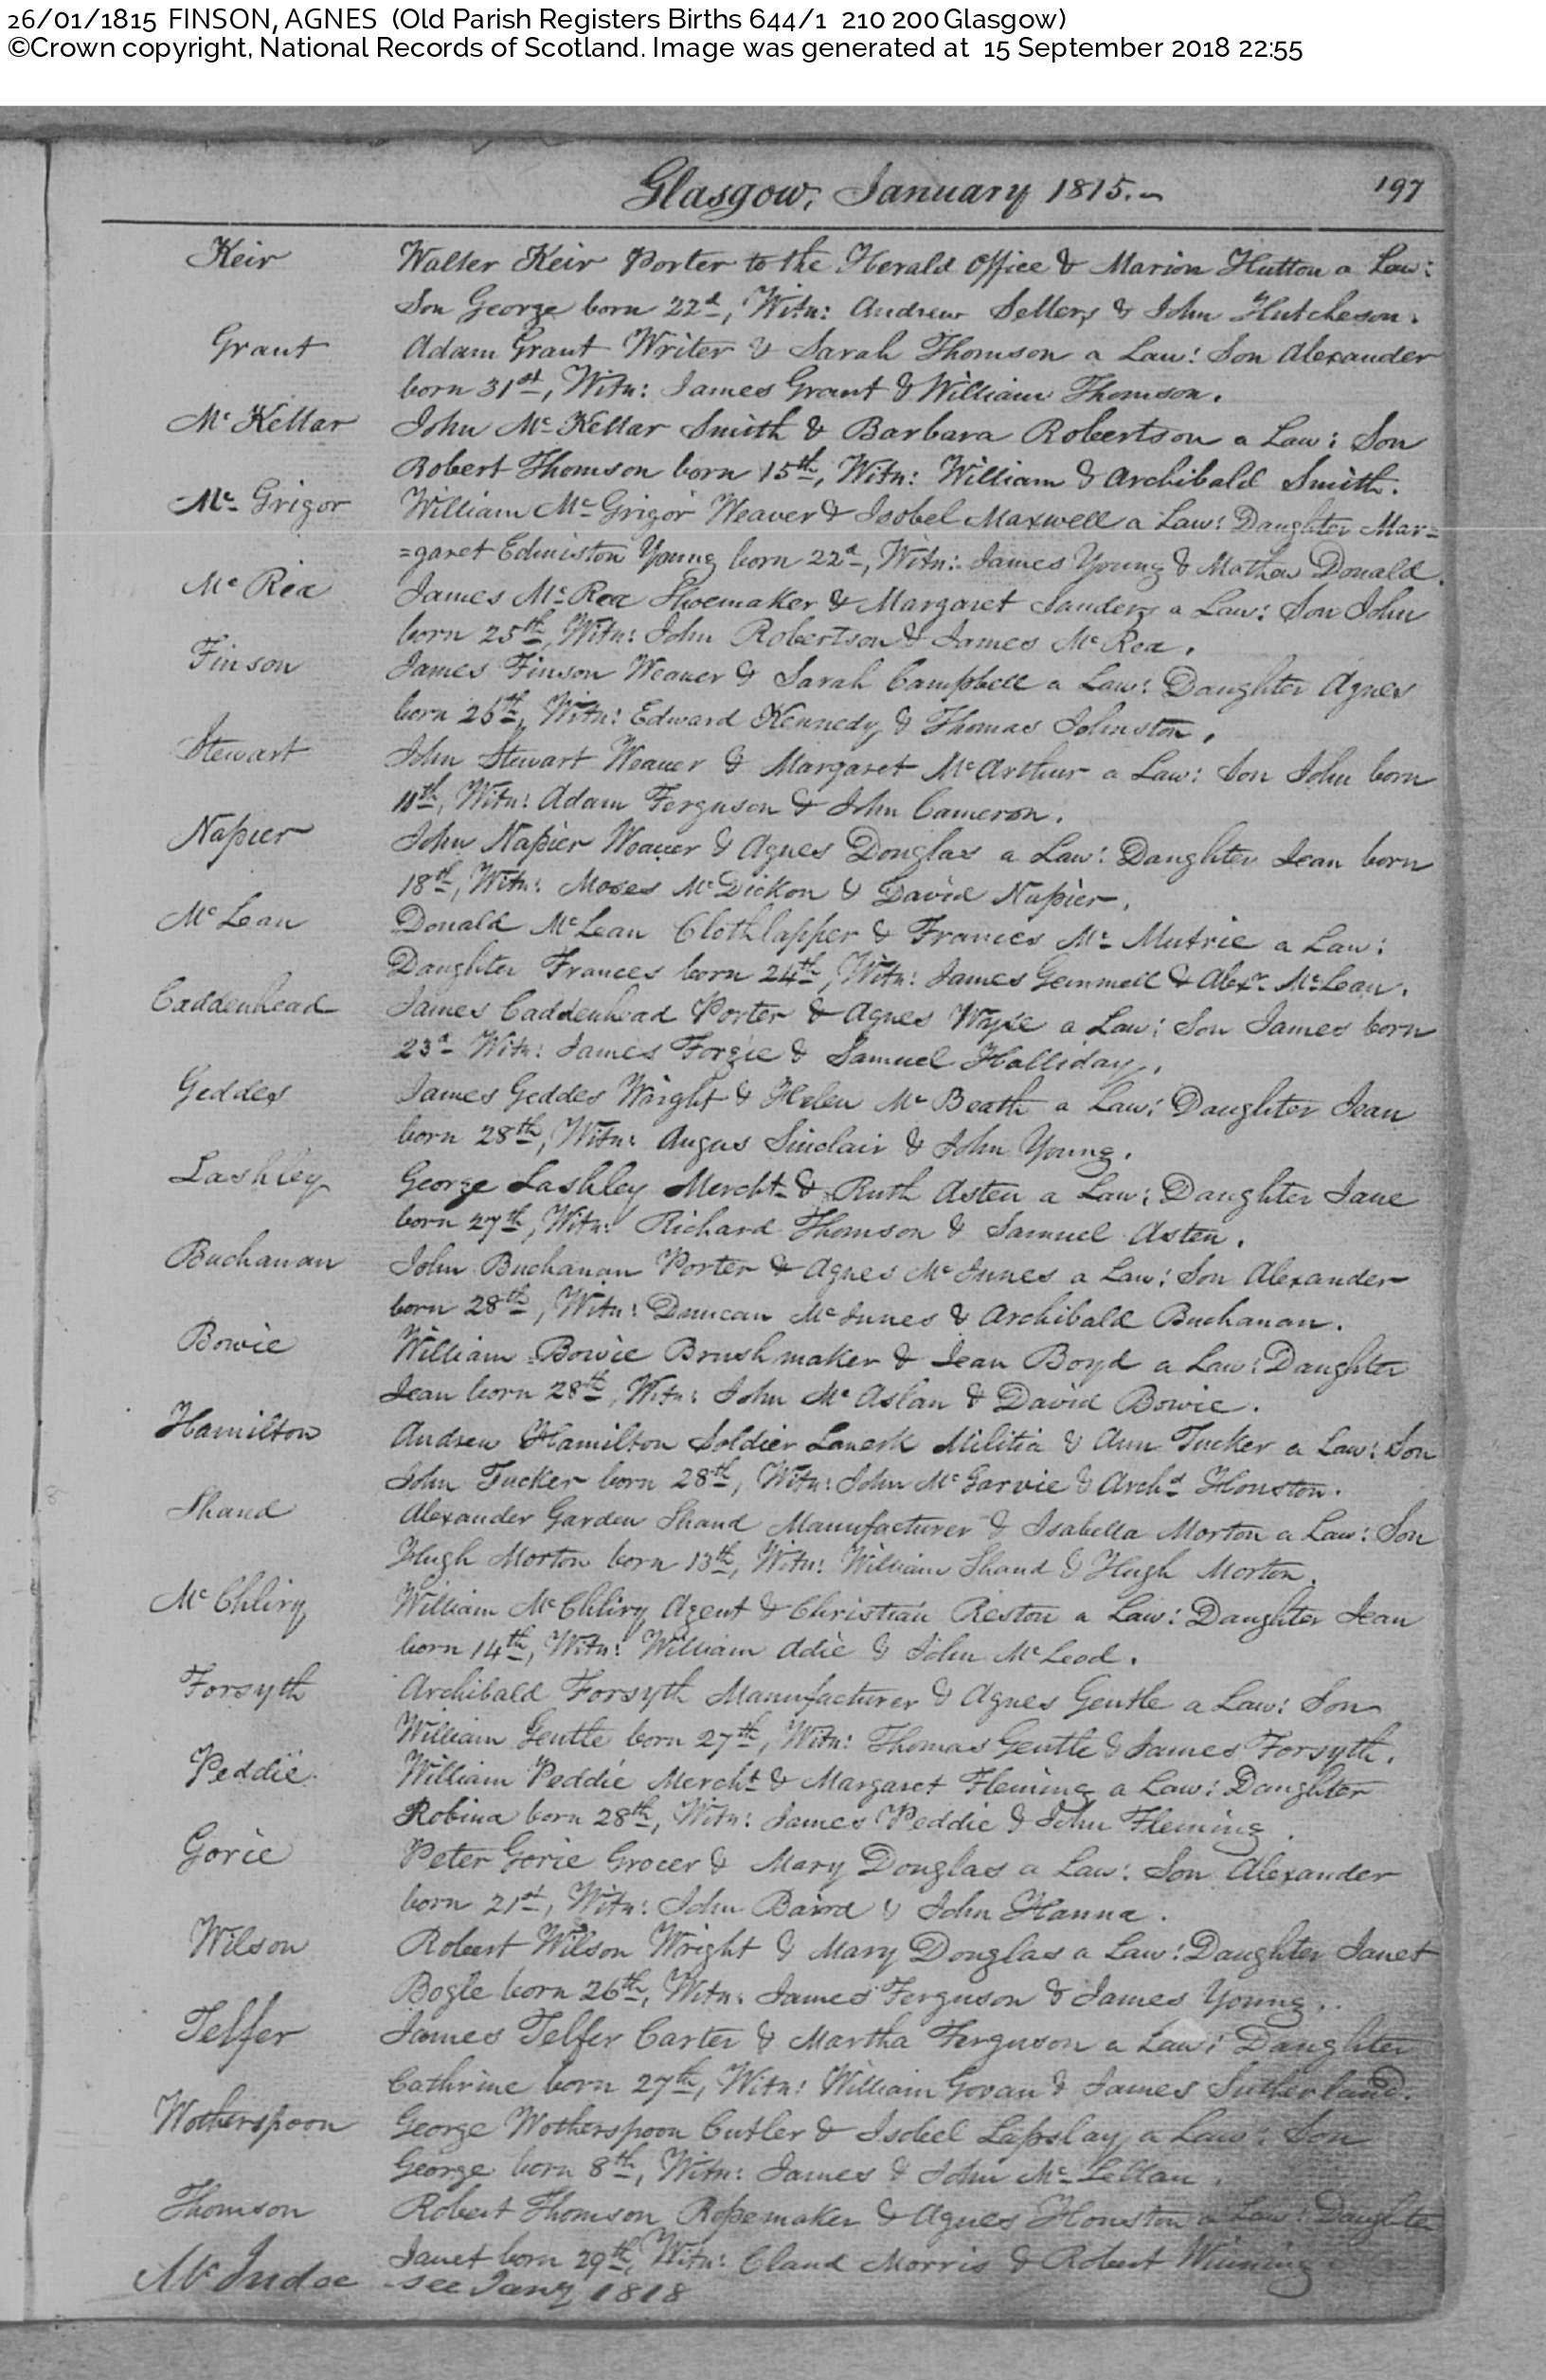 26/01/1815 FINSON, AGNES (Old Parish Registers Births 644/1 210 200 Glasgow)
©Crown copyright, National Records of Scotland. Image was generated at 15 September 2018 22:55
Glasgow, January 1815.~ 197
Keir Walter Keir Porter to the Herald Office & Marion Hutton a Law:
Son George born 22d, Witn: Andrew Sellers & John Hutcheson.
Grant Adam Grant Writer & Sarah Thomson a Law: Son Alexander
born 31st, Witn: James Grant & William Thomson.
Mc Kellar John Mc Kellar Smith & Barbara Robertson a Law: Son
Robert Thomson born 15th, Witn: William & Archibald Smith.
Mc Grigor William Mc Grigor Weaver & Isobel Maxwell a Law: Daughter Mar=
=garet Edmiston Young born 22d, Witn: James Young & Mathew Donald.
Mc Rea James Mc Rea Shoemaker & Margaret Sanders a Law: Son John
born 25th, Witn: John Robertson & James Mc Rea.
Finson James Finson Weaver & Sarah Campbell a Law: Daughter Agnes
born 26th, Witn: Edward Kennedy & Thomas Johnston.
Stewart John Stewart Weaver & Margaret Mc Arthur a Law: Son John born
11th, Witn: Adam Ferguson & John Cameron.
Napier John Napier Weaver & Agnes Douglas a Law: Daughter Jean born
18th, Witn: Moses Mc Dickon & David Napier.
Mc Lean Donald Mc Lean Clothlapper & Frances Mc Mutrie a Law:
Daughter Frances born 24th, Witn: James Gemmell & Alexr. McLean.
Caddenhead James Caddenhead Porter & Agnes Wylie a Law: Son James born
23d Witn: James Forgie & Samuel Halliday.
Geddes James Geddes Wright & Helen Mc Beath a Law: Daughter Jean
born 28th, Witn: Angus Sinclair & John Young.
Lashley George Lashley Mercht. & Ruth Asten a Law: Daughter Jane
born 27th, Witn: Richard Thomson & Samuel Asten.
Buchanan John Buchanan Porter & Agnes Mc Innes a Law: Son Alexander
born 28th, Witn: Duncan Mc Innes & Archibald Buchanan.
Bowie William Bowie Brushmaker & Jean Boyd a Law: Daughter
Jean born 28th, Witn: John Mc Aslan & David Bowie.
Hamilton Andrew Hamilton Soldier Lanerk Militia & Ann Tucker a Law: Son
John Tucker born 28th, Witn: John Mc Garvie & Archd Houston.
Shand Alexander Garden Shand Manufacturer & Isabella Morton a Law: Son
Hugh Morton born 13th, Witn: William Shand & Hugh Morton.
Mc Chliry William Mc Chliry Agent & Christian Reston a Law: Daughter Jean
born 14th, Witn: William Adie & John Mc Leod.
Forsyth Archibald Forsyth Manufacturer & Agnes Gentle a Law: Son
William Gentle born 27th, Witn: Thomas Gentle & James Forsyth.
Peddie William Peddie Mercht & Margaret Fleming a Law: Daughter
Robina born 28th, Witn: James Peddie & John Fleming.
Gorie Peter Gorie Grocer & Mary Douglas a Law: Son Alexander
born 21st, Witn: John Baird & John Hanna.
Wilson Robert Wilson Wright & Mary Douglas a Law: Daughter Janet
Bogle born 26th, Witn: James Ferguson & James Young.
Telfer James Telfer Carter & Martha Ferguson a Law: Daughter
Cathrine born 27th, Witn: William Govan & James Sutherland.
Wotherspoon George Wotherspoon Cutler & Isobel Lapslay a Law: Son
George born 8th, Witn: James & John Mc Lellan.
Thomson Robert Thomson Ropemaker & Agnes Houston a Law: Daughter
Janet born 29th, Witn: Claud Morris & Robert Winning
Mc Indoe - see Jany 1818